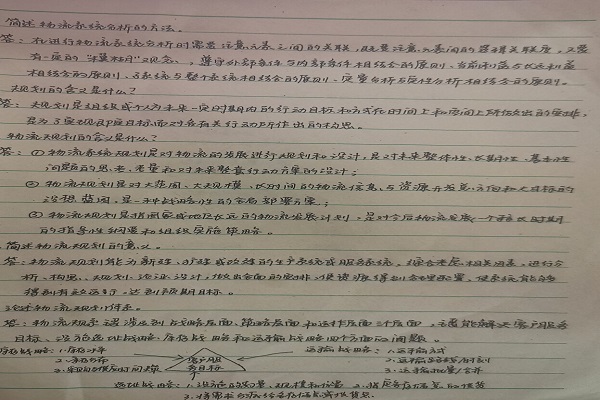 简述物流系统分析的方法。
答：在进行物流系统分析时需要注意元素之间的关联，既要注意元素间的逻辑关联度，又要
有一定的"眼"观念，遵守外部条件与内部条件相结合的原则、当前利益与长远利益
相结合的原则、子系统与整个系统相结合的原则、定量分析与定性分析相结合的原则。
规划的含义是什么？
答：规划是组织或个人为未来一定时期内的行动目标和方式在时间上和空间上所做出的安排，
是为了实现既定目标而对各有关行动所作出的构思。
物流规划的含义是什么？
答：①物流系统规划是对物流的发展进行规划和设计，是对未来整体性、长期性、基本性
问题的思考、考量和对未来整套行动方案的设计；
②物流规划是对大范围、大规模、长时间的物流信息与资源开发总方向和大目标的
设想蓝图，是一种战略性的全局部署方案；
③物流规划是指国家或地区长远的物流发展计划，是对今后物流发展一个较长时期
的指导性纲要和组织实施策略。
简述物流规划的意义。
答：物流规划能为新建、扩建或改造的生产系统或服务系统，综合考虑相关因素，进行分
析、构思、规划、论证、设计，做出全面的安排，使资源得到合理配置，使系统能够
得到有效运行，达到预期目标。
论述物流规划体系。
答：物流规划涉及到战略层面、策略层面和运作层面三个层面，主要能解决客户服务
目标、设施选址战略、库存战略和运输战略四个方面的问题。
库存战略：1.库存水平 运输战略：1.运输方式
2.库存分布 客户服务目标 2.运输路线/时刻
3. 3.运输批量/合并
选址战略：1.设施的数量、规模和位置 2.指定各存储点的供货
3.将需求分派给各存储点或供货点